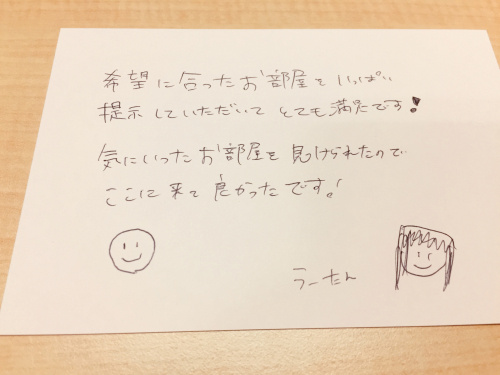 希望に合ったお部屋をいっぱい
提示していただいてとても満足です!
気にいったお部屋を見けられたので
ここに来て良かったです!
うーたん